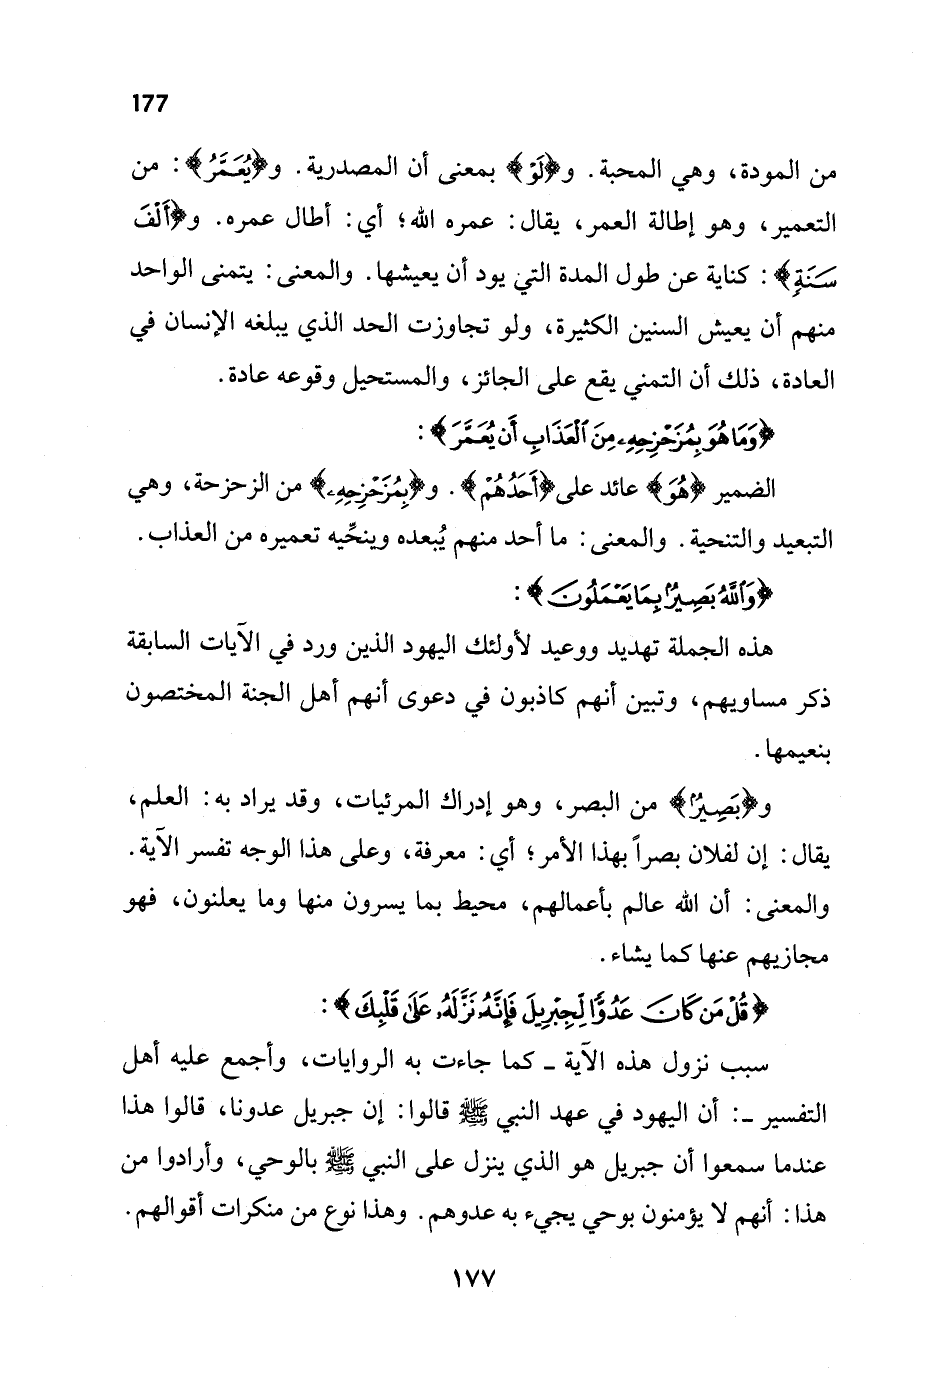 177
من المودة، وهي المحبة. و﴿لَوْ﴾ بمعنى أن المصدرية. و﴿يُعَمَّرُ﴾: من
التعمير، وهو إطالة العمر، يقال: عمره الله؛ أي: أطال عمره. و﴿أَلْفَ
سَنَةٍ﴾: كناية عن طول المدة التي يود أن يعيشها. والمعنى: يتمنى الواحد
منهم أن يعيش السنين الكثيرة، ولو تجاوزت الحد الذي يبلغه الإنسان في
العادة، ذلك أن التمني يقع على الجائز، والمستحيل وقوعه عادة.
﴿وَمَا هُوَ بِمُزَحْزِحِهِۦ مِنَ ٱلْعَذَابِ أَن يُعَمَّرَ﴾:
الضمير ﴿هُوَ﴾ عائد على ﴿أَحَدُهُمْ﴾. و﴿بِمُزَحْزِحِهِۦ﴾ من الزحزحة، وهي
التبعيد والتنحية. والمعنى: ما أحد منهم يُبعده وينحِّيه تعميره من العذاب.
﴿وَٱللَّهُ بَصِيرٌۢ بِمَا يَعْمَلُونَ﴾:
هذه الجملة تهديد ووعيد لأولئك اليهود الذين ورد في الآيات السابقة
ذكر مساويهم، وتبين أنهم كاذبون في دعوى أنهم أهل الجنة المختصون
بنعيمها.
و﴿بَصِيرٌۢ﴾ من البصر، وهو إدراك المرئيات، وقد يراد به: العلم،
يقال: إن لفلان بصراً بهذا الأمر؛ أي: معرفة، وعلى هذا الوجه تفسر الآية.
والمعنى: أن الله عالم بأعمالهم، محيط بما يسرون منها وما يعلنون، فهو
مجازيهم عنها كما يشاء.
﴿قُلْ مَن كَانَ عَدُوًّا لِّجِبْرِيلَ فَإِنَّهُۥ نَزَّلَهُۥ عَلَىٰ قَلْبِكَ﴾:
سبب نزول هذه الآية ـ كما جاءت به الروايات، وأجمع عليه أهل
التفسير ـ: أن اليهود في عهد النبي ﷺ قالوا: إن جبريل عدونا، قالوا هذا
عندما سمعوا أن جبريل هو الذي ينزل على النبي ﷺ بالوحي، وأرادوا من
هذا: أنهم لا يؤمنون بوحي يجيء به عدوهم. وهذا نوع من منكرات أقوالهم.
١٧٧